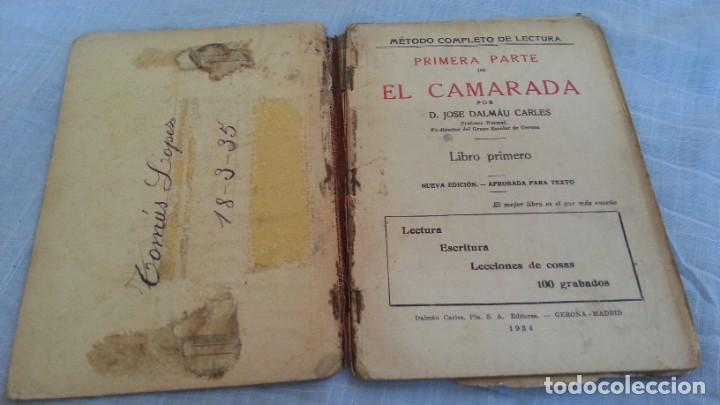 Tomás Lopez
18-3-35
MÉTODO COMPLETO DE LECTURA
PRIMERA PARTE
DE
EL CAMARADA
POR
D. JOSE DALMÁU CARLES
Profesor Normal,
Ex-director del Grupo Escolar de Gerona
Libro primero
NUEVA EDICIÓN. — APROBADA PARA TEXTO
El mejor libro es el que más enseña
Lectura
Escritura
Lecciones de cosas
100 grabados
Dalmáu Carles, Pla. S. A. Editores. — GERONA-MADRID
1934
todocoleccion.net